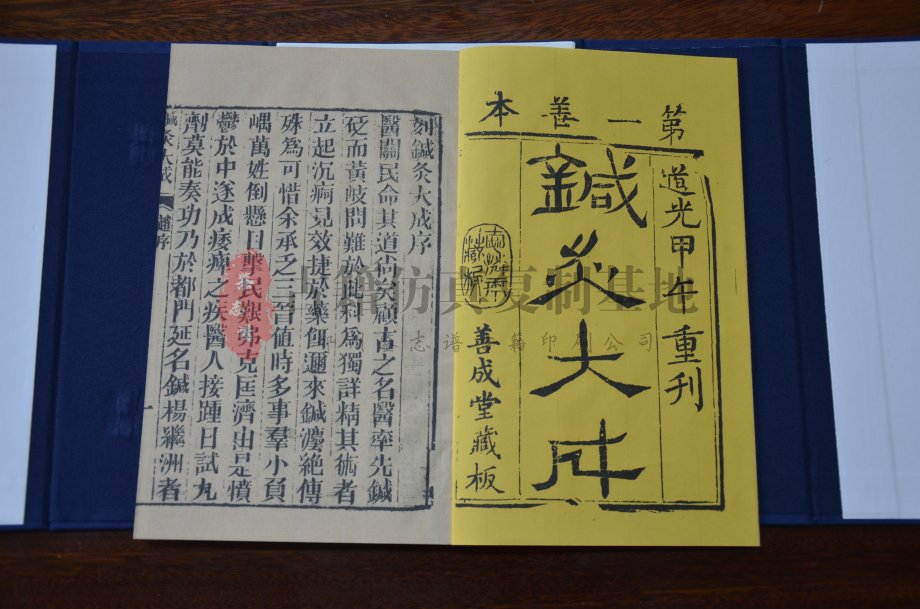 第一善本
道光甲午重刊
鍼灸大成
善成堂藏板
刻鍼灸大成序
醫關民命其道尚矣顧古之名醫率先鍼
砭而黃岐問難於此科為獨詳精其術者
立起沉痾見效捷於藥餌邇來鍼灋絕傳
殊為可惜余承乏三晉值時多事羣小負
嵎萬姓倒懸目擊民艱弗克匡濟由是憤
鬱於中遂成痿痺之疾醫人接踵日試丸
劑莫能奏功乃於都門延名鍼楊繼洲者
鍼灸大成 趙序 一
古籍仿真复制基地
志谱 籍印刷公司